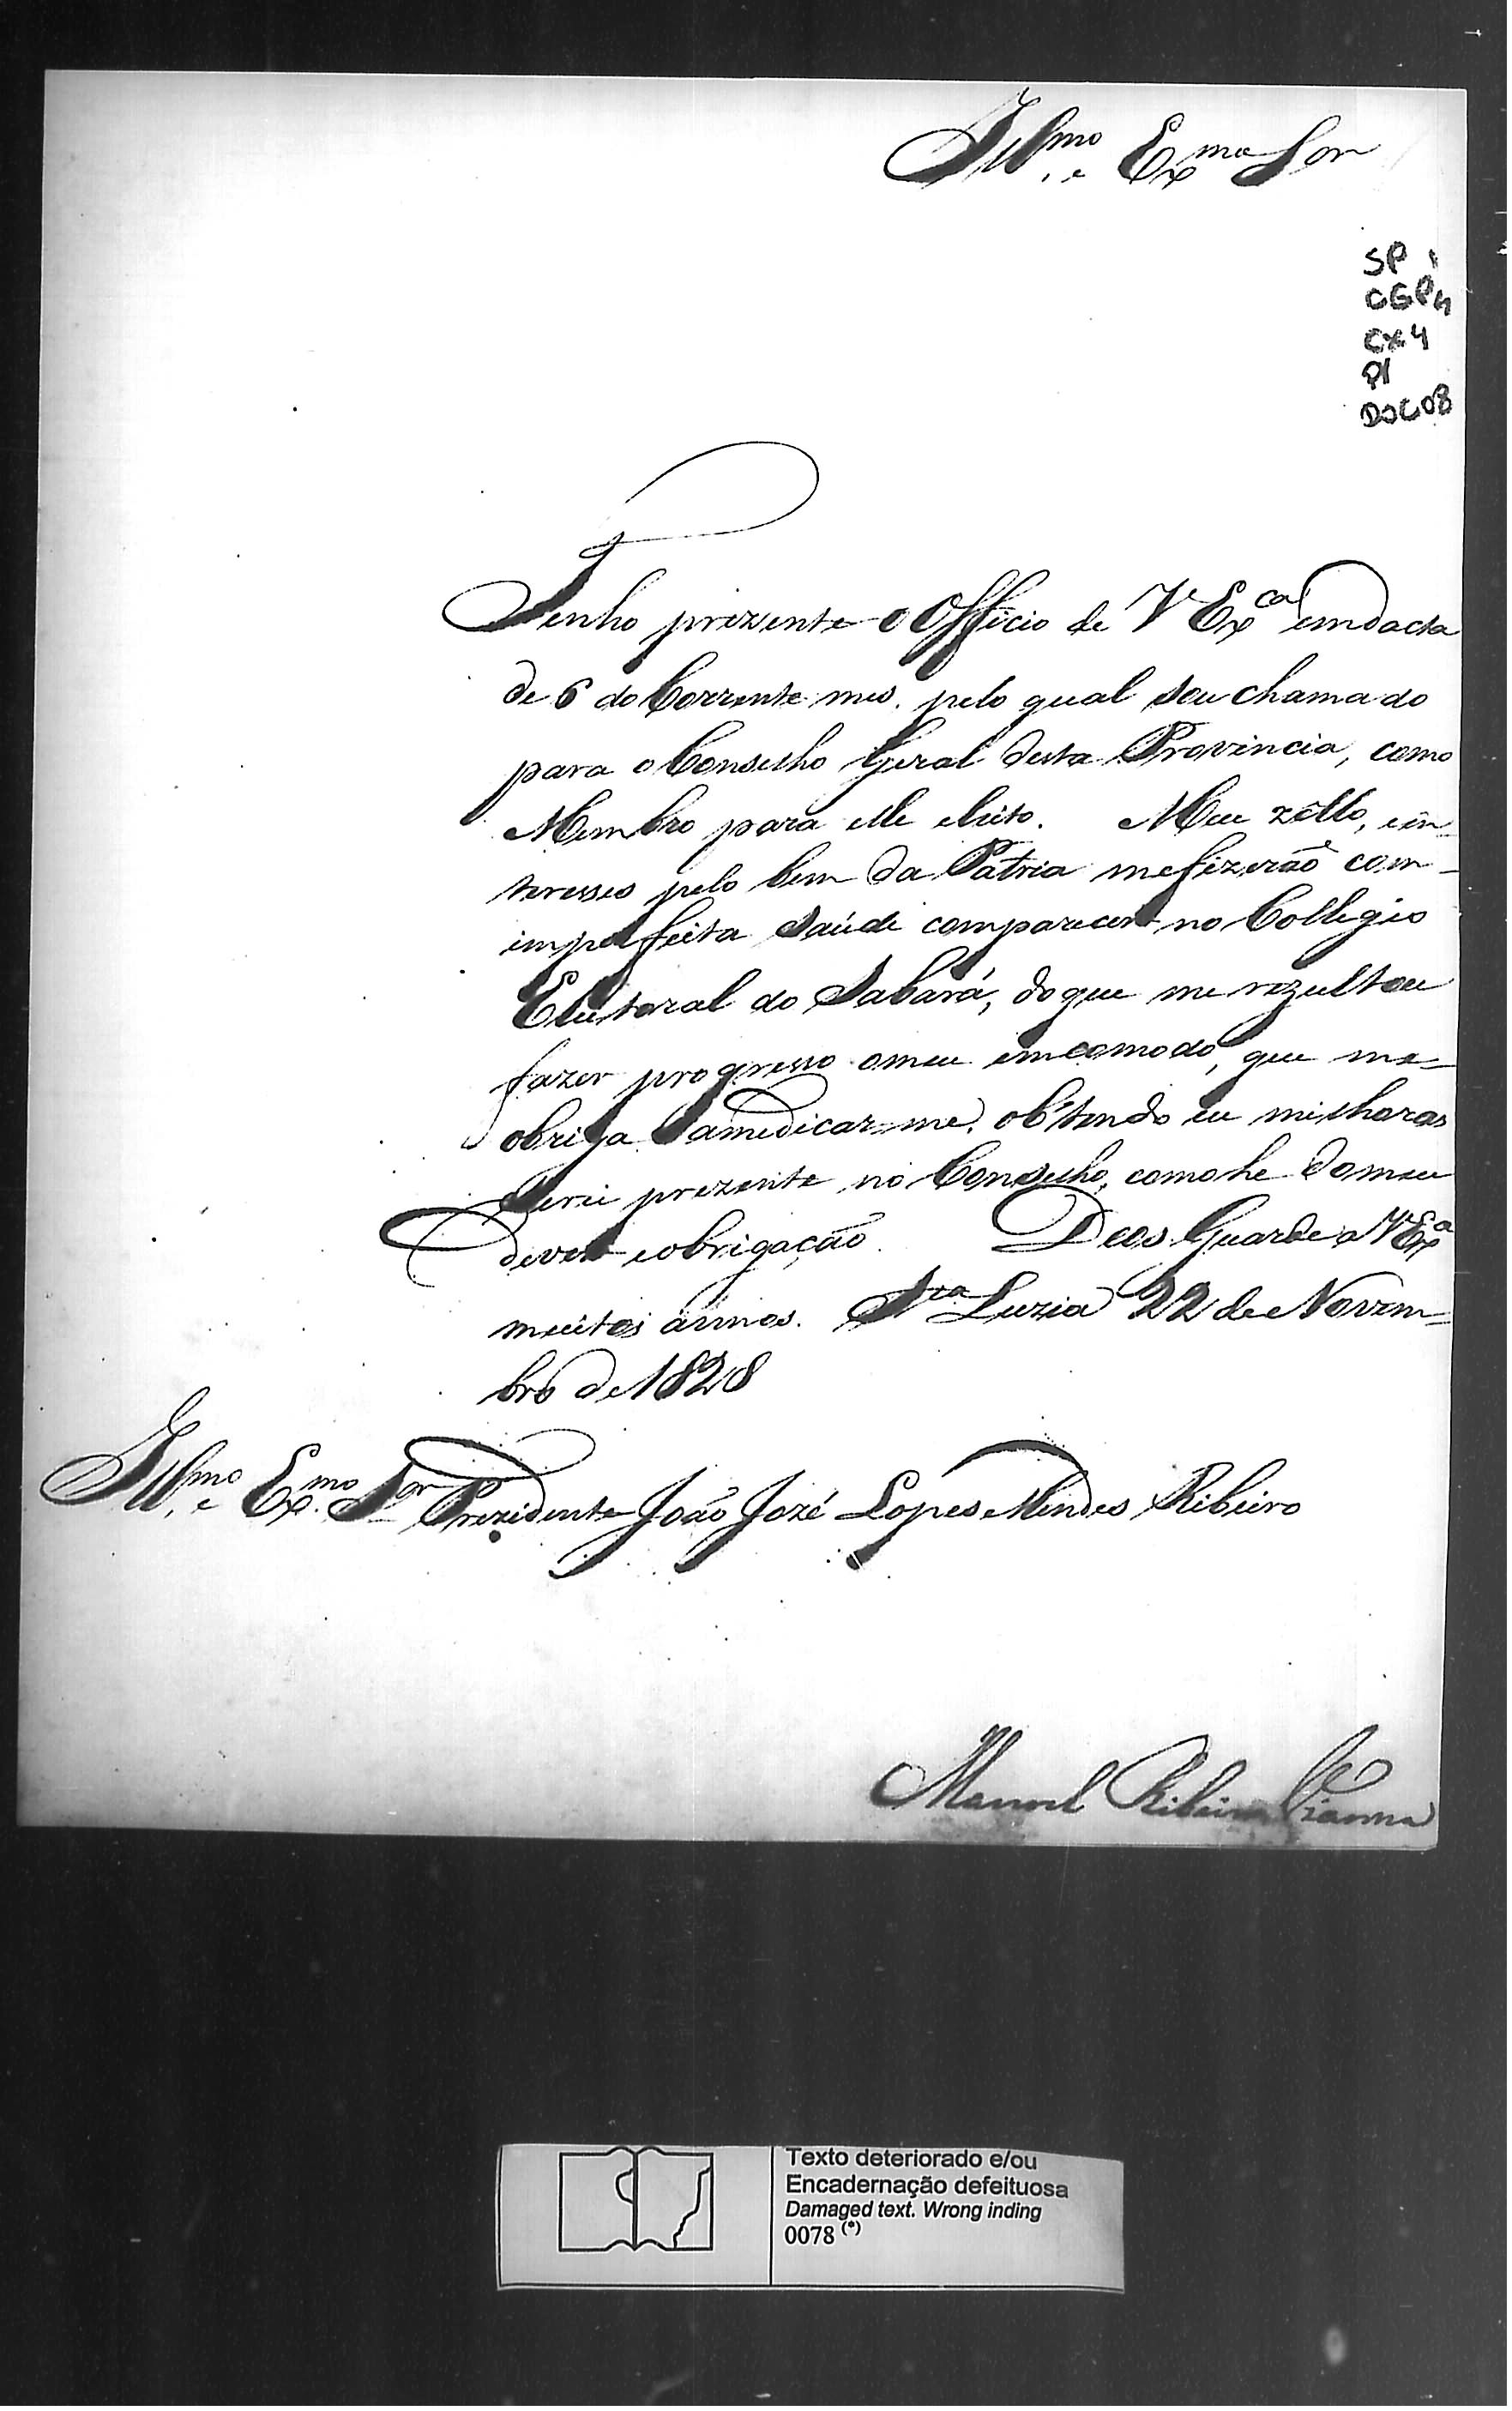 Illmo e Exmo Sor
SP
CGP4
Cx 4
P1
DOC 08
Tenho prezente o Officio de V Exca em dacta
de 6 do Corrente mes. pelo qual sou chamado
para o Conselho Geral desta Provincia, como
Membro para elle eleito. Meu zello, ein-
teresses pelo bem da Patria mefizerão com-
imperfeita saúde comparecer no Collegio
Eleitoral do Sabará, doque me rezultou
fazer progresso omeu emcomodo, que me-
obriga amedicar-me. obtendo eu milhoras
serei prezente no Conselho, como he domeu
dever eobrigação. Deos Guarde a V Exa
muitos annos. Sta Luzia 22 de Novem=
bro de 1828
Illmo e Exmo Sor Prezidente João Jozé Lopes Mendes Ribeiro
Manoel Ribeiro Vianna
Texto deteriorado e/ou
Encadernação defeituosa
Damaged text. Wrong inding
0078 (*)